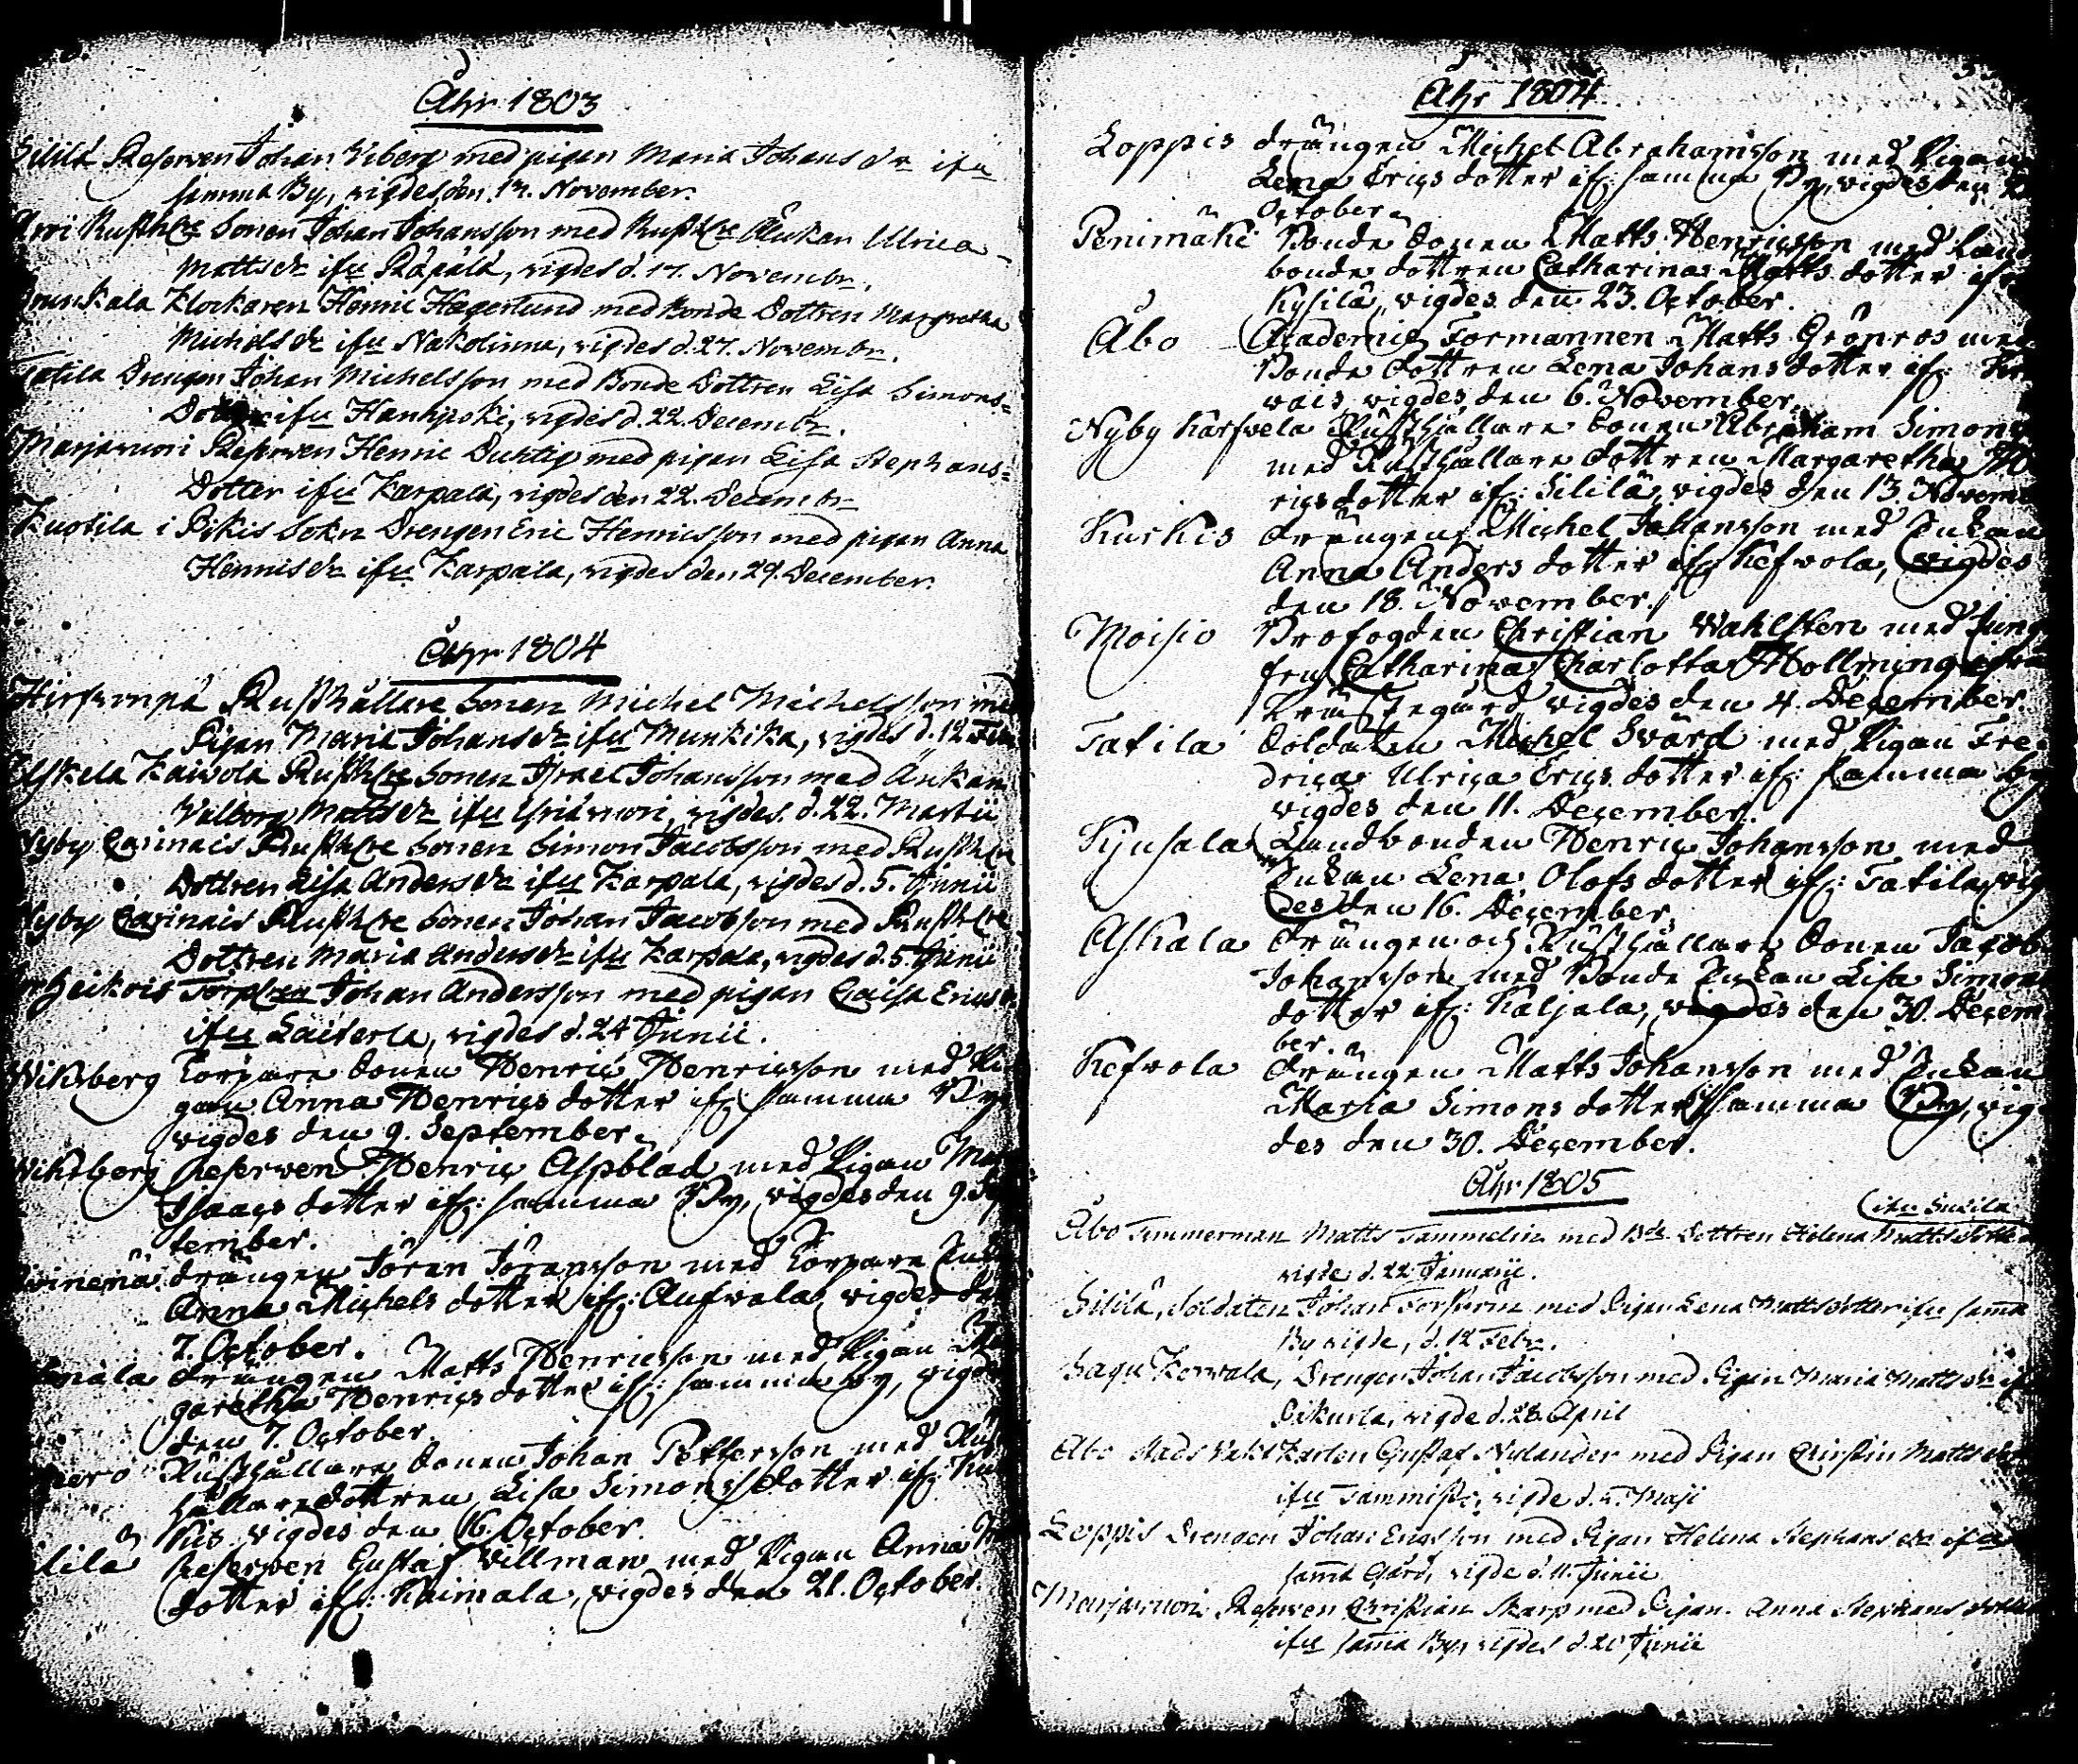 Åhr 1803
Sililä Reserven Johan Viberg med pigan Maria Johans dr ifrn
samma By, vigdes den 17. November.
Rusthlre Sonen Johan Johansson med Rusth:re Änkan Ulrica
Matts dr ifrn Räpälä, vigdes d. 17. Novembr.
Klockaren Henric Hagerlund med Bonde Dottren Margretha
Michels dr ifrn Nakolinna, vigdes d. 27. Novembr.
Tatila Drengen Johan Michelsson med Bonde Dottren Lisa Simons=
Dotter ifrn Hanhijoki, vigdes d. 22. Decembr.
Marjavuori Reserven Henric Duktig med pigan Lisa Stephans=
Dotter ifrn Karpala, vigdes den 22. Decembr
Kuotila i Pikis Sokn Drengen Eric Henricsson med pigan Anna
Henrics dr ifrn Karpala, vigdes den 29. December.
Åhr 1804
Rusthållare Sonen Michel Michelsson med
Pigan Maria Johans dr ifrn Munkika, vigdes d. 12 Febr
Kaivola Rusthlre Sonen Israel Johansson med Änkan
Valborg Matts dr ifrn vigdes d. 22. Martii
Nyby Carinais Rusthlre Sonen Simon Jacobsson med Rusthlre
Dottren Lisa Anders dr ifrn Karpala, vigdes d. 5. Junii
Nyby Carinais Rusthlre Sonen Johan Jacobsson med Rusthlre
Dottren Maria Anders dr ifrn Karpala, vigdes d. 5. Junii
Heikois Torp Johan Andersson med pigan Caisa Erics dr
ifrn vigdes d. 24 Junii.
Wiksberg Torpare Sonen Henric Henricsson med Pi-
gan Anna Henrics dotter ifr: samma By
vigdes den 9. September.
Wiksberg Reserven Henric Aspblad med Pigan
Isaacs dotter ifr: samma By, vigdes den 9. Sep
tember.
drängen Jöran Jöransson med Torpare
Anna Michels dotter ifr: Aufvala, vigdes den
7. October.
drängen Matts Henricsson med Pigan Mar
garetha Henrics dotter ifr: samma by, vigdes
den 7. October.
Rusthållare Sonen Johan Pettersson med Rust
hållare dottren Lisa Simons dotter ifr: Kur
kis vigdes den 16. October.
Reserven Gustaf Villman med Pigan Anna
dotter ifr: Raimala, vigdes den 21. October.
Åhr 1804
Loppis drängen Michel Abrahamsson med Pigan
Lena Erics dotter ifr: samma By, vigdes den
October.
Penimäki Bonde Sonen Matts Henricsson med Land
bonde dottren Catharina Matts dotter ifr
Kysilä, vigdes den 23. October.
Åbo Academie Formannen Matts Grönros med
Bonde dottren Lena Johans dotter ifr:
vais vigdes den 6. November.
Nyby Karfvela Rusthållare Sonen Abraham Simons
med Rusthållare dottren Margaretha Hen
rics dotter ifr: Sililä, vigdes den 13. Novem
Kurkis drängen Michel Johansson med Enkan
Anna Anders dotter ifr: Kefvola, vigdes
den 18. November.
Moisio Profogden Christian Wahlsten med Jung
fru Catharina Charlotta Hollming ifrån
Prästegård vigdes den 4. December.
Tatila Soldaten Michel Svärd med Pigan Fre-
drica Ulrica Erics dotter ifr: samma by
vigdes den 11. December.
Landbonden Henric Johansson med
Enkan Lena Olofs dotter ifr: Tatila, vig
des den 16. December.
Askala drängen och Rusthållare Sonen Jacob
Johansson med Bonde Enkan Lisa Simons
dotter ifr: Kaljala, vigdes den 30. Decem
ber.
Kefvola drängen Matts Johansson med Enkan
Maria Simons dotter samma By, vig
des den 30. December.
Åhr 1805
Åbo Timmerman Matts Tammelin med Bde Dottren Helena Matts dotter
vigde d. 22 Januarii.
Sililä, Soldaten Johan med Pigan Lena Matts dotter ifrn samma
By vigde, d. 12 Febr.
Sagu Drengen Johan Jacobsson med Pigan Maria Matts dr ifr
vigde d. 28. April
Åbo Stads Vakt Karlen Gustaf Nylander med Pigan Christin Matts dr
ifrn Tammisto, vigde d. Maji
Loppis Drengen Johan Ericsson med Pigan Helena Stephans dr ifrn
samma Gård, vigde d. 11. Junii
Marjavuori Reserven Christian Skarp med Pigan Anna Stephans dotter
ifrn samma By, vigdes d. 20 Junii